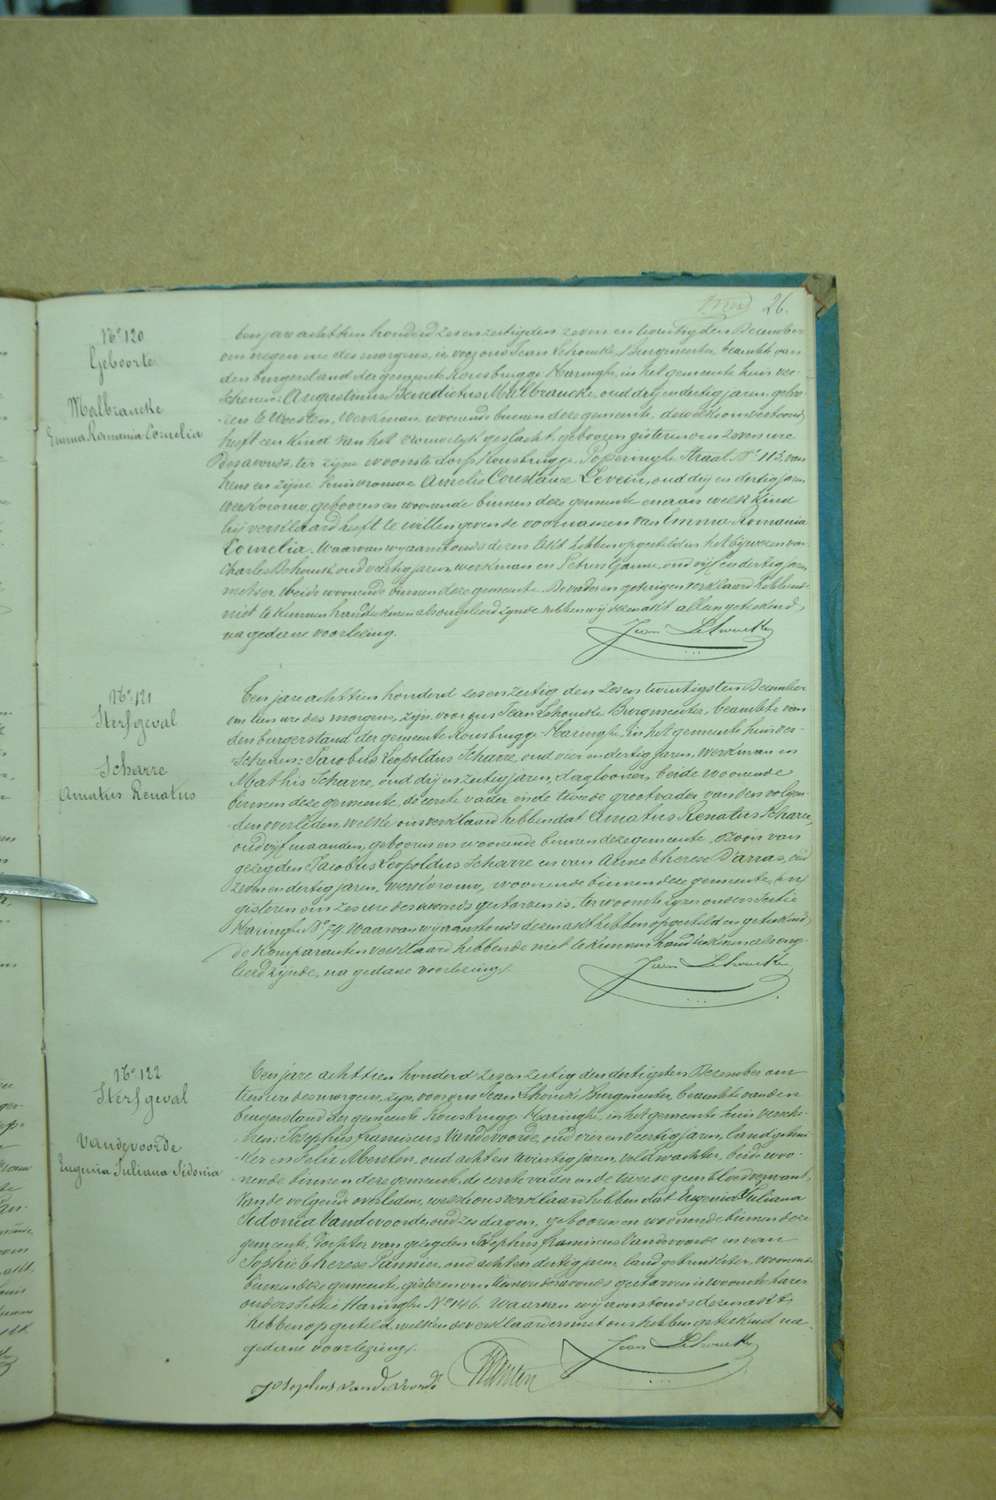 26.
N° 120
Geboorte
Malbrancke
Emma Romania Cornelia
Een jare achttien honderd zes en zestig den zeven en twintigsten December
om negen ure des morgens, is voor ons Jean Schoucke, Burgmeester, beambte van
den burgerstand der gemeente Rousbrugge-Haringhe, in het gemeente huis ver-
schenen: Augustinus Benedictus Malbrancke, oud drij en dertig jaren, gebo-
ren te Westen, werkman, woonende binnen deze gemeente, dewelke ons vertoond
heeft een kind van het vrouwelyk geslacht, geboren gisteren om zeven ure
des avonds, ter zijne woonste dorp Rousbrugge, Poperinghe Straat N° 113, van
hem en zijne huisvrouwe Amelie Constance Levein, oud drij en dertig jaren
werkvrouw, geboren en woonende binnen deze gemeente en aan welk kind
hij verklaard heeft te willen geven de voornamen van Emma Romania
Cornelia. Waarvan wij aanstonds dezen akt hebben opgesteld in het bijwezen van
Charles Schoucke, oud veertig jaren, werkman en Petrus Ganne, oud vijf en dertig jaren
metser, beide woonende binnen deze gemeente. De vader en getuigen verklaard hebbende
niet te kunnen handteekenen als ongeleerd zynde, hebben wij dezen akt alleen geteekend,
na gedane voorlezing.
N° 121
Sterfgeval
Scharre
Amatus Renatus
Een jare achttien honderd zes en zestig den zes en twintigsten December
om tien ure des morgens, zijn voor ons Jean Schoucke Burgmeester, beambte van
den burgerstand der gemeente Rousbrugge-Haringhe, in het gemeente huis ver-
schenen: Jacobus Leopoldus Scharre, oud vier en dertig jaren, werkman en
Mathis Scharre, oud drij en zestig jaren, daglooner, beide woonende
binnen deze gemeente, de eerste vader en de tweede grootvader van den volgen-
den overleden, welke ons verklaard hebben dat Amatus Renatus Scharre,
oud vijf maanden, geboren en woonende binnen deze gemeente, zoon van
gezegden Jacobus Leopoldus Scharre en van Anne Therese D'arras, oud
zeven en dertig jaren, werkvrouw, woonende binnen deze gemeente,
gisteren om zes ure des avonds gestorven is, ter woonste zyner ouders Sectie
Haringhe N° 79. Waarvan wij aanstonds dezen akt hebben opgesteld en geteekend,
de komparanten verklaard hebbende niet te kunnen handteekenen als onge-
leerd zijnde, na gedane voorlezing.
N° 122
Sterfgeval
Vandevoorde
Eugenia Juliana Sidonia
Een jare achttien honderd zes en zestig den dertigsten December om
tien ure des morgens, zijn voor ons Jean Schoucke Burgmeester, beambte van den
burgerstand der gemeente Rousbrugge Haringhe, in het gemeente huis versche-
nen: Josephus Franciscus Vandevoorde, oud vier en veertig jaren, landgebrui-
ker en Felix Menten, oud acht en twintig jaren, veldwachter, beide woo-
nende binnen deze gemeente, de eerste vader en de tweede geen bloedverwant
van de volgende overledene, welke ons verklaard hebben dat Eugenia Juliana
Sidonia Vandevoorde, oud zes dagen, geboren en woonende binnen deze
gemeente, dochter van gezegden Josephus Franciscus Vandevoorde en van
Sophie Therese Pannier, oud acht en dertig jaren, landgebruikster, woonende
binnen deze gemeente, gisteren om tien ure des avonds gestorven is, ter woonste harer
ouders Sectie Haringhe N° 146. Waarvan wij aanstonds dezen akt
hebben opgesteld, welken de verklaarders met ons hebben geteekend na
gedane voorlezing.
Josephus Vandevoorde